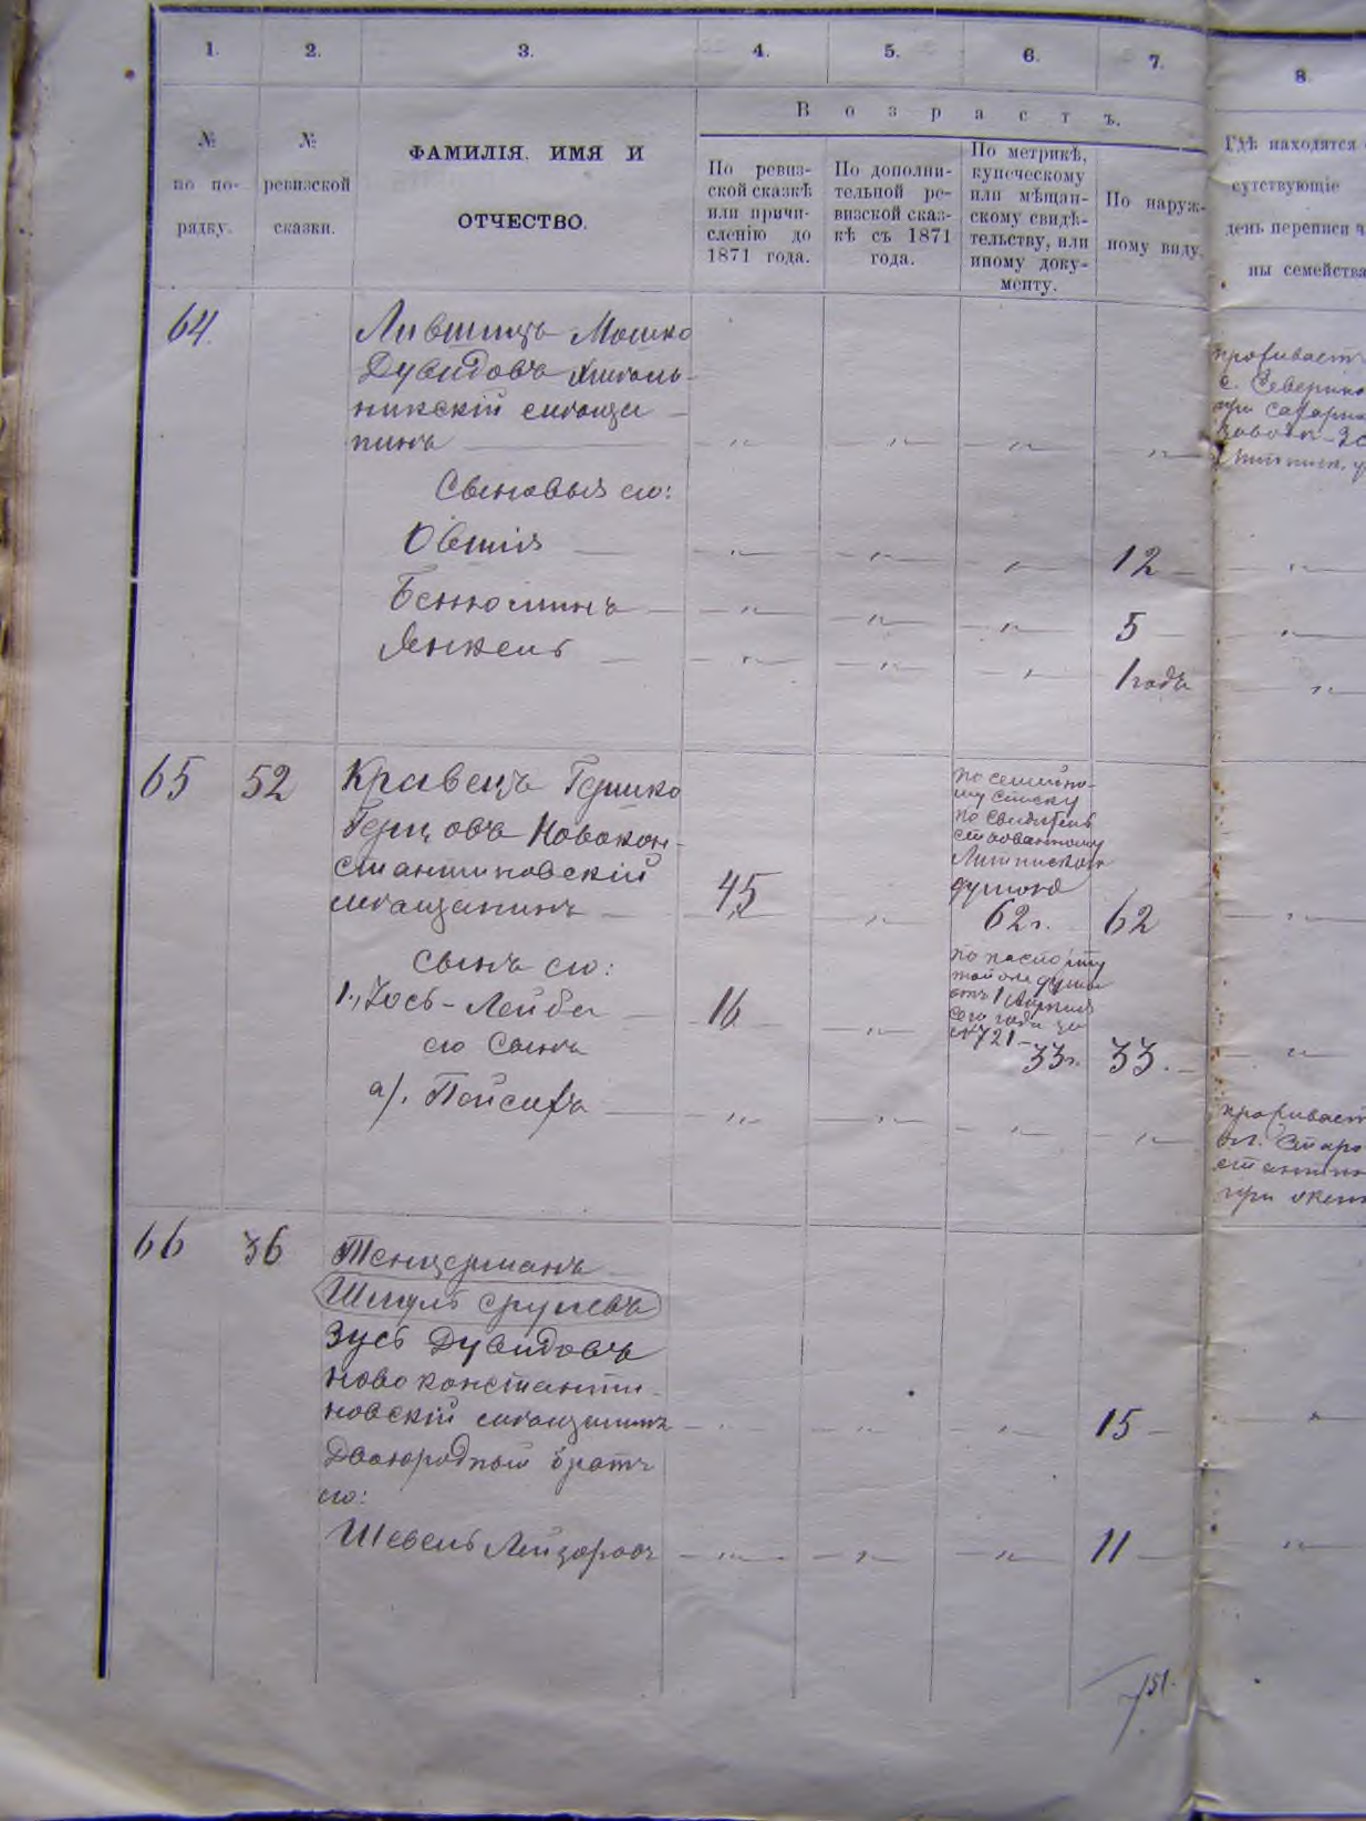 1. 2. 3. 4. 5. 6. 7. 8.
№
по по-
рядку.
№
ревизской
сказки.
ФАМИЛІЯ. ИМЯ И
ОТЧЕСТВО.
Возрастъ.
По ревиз-
ской сказкѣ
или причи-
сленію до
1871 года.
По дополни-
тельной ре-
визской сказ-
кѣ съ 1871
года.
По метрикѣ,
купеческому
или мѣщан-
скому свидѣ-
тельству, или
иному доку-
менту.
По наруж-
ному виду.
Гдѣ находятся
сутствующіе
день переписи
ны семейства
64
Лившицъ Мошко
Дувидовъ Хмѣль-
никскій мѣща-
нинъ
проживаетъ
с. Северин
при сахарн
завод
Сыновья его:
Овшія 12
Бенюминъ 5
Янкель 1 годъ
65 52
Кравецъ Гершко
Герцовъ Новокон-
стантиновскій
мѣщанинъ 45
по семейно-
му списку
по свидѣтель
ствованному
Литинскою
думою
62 г. 62
сынъ его:
1., Іось-Лейба 16
по паспорту
той же думы
отъ 1 Апрѣля
сего года за
№ 721 -
33 г. 33.
его сынъ
а/. Пейсахъ
проживает
въ м. Старо
стантин
при
66 36
Тенцерманъ
Шмуль Сруневъ
Зусь Дувидовъ
новоконстанти-
новскій мѣщанинъ 15
Двоюродный братъ
его:
Шевель Лейзоровъ 11
151.